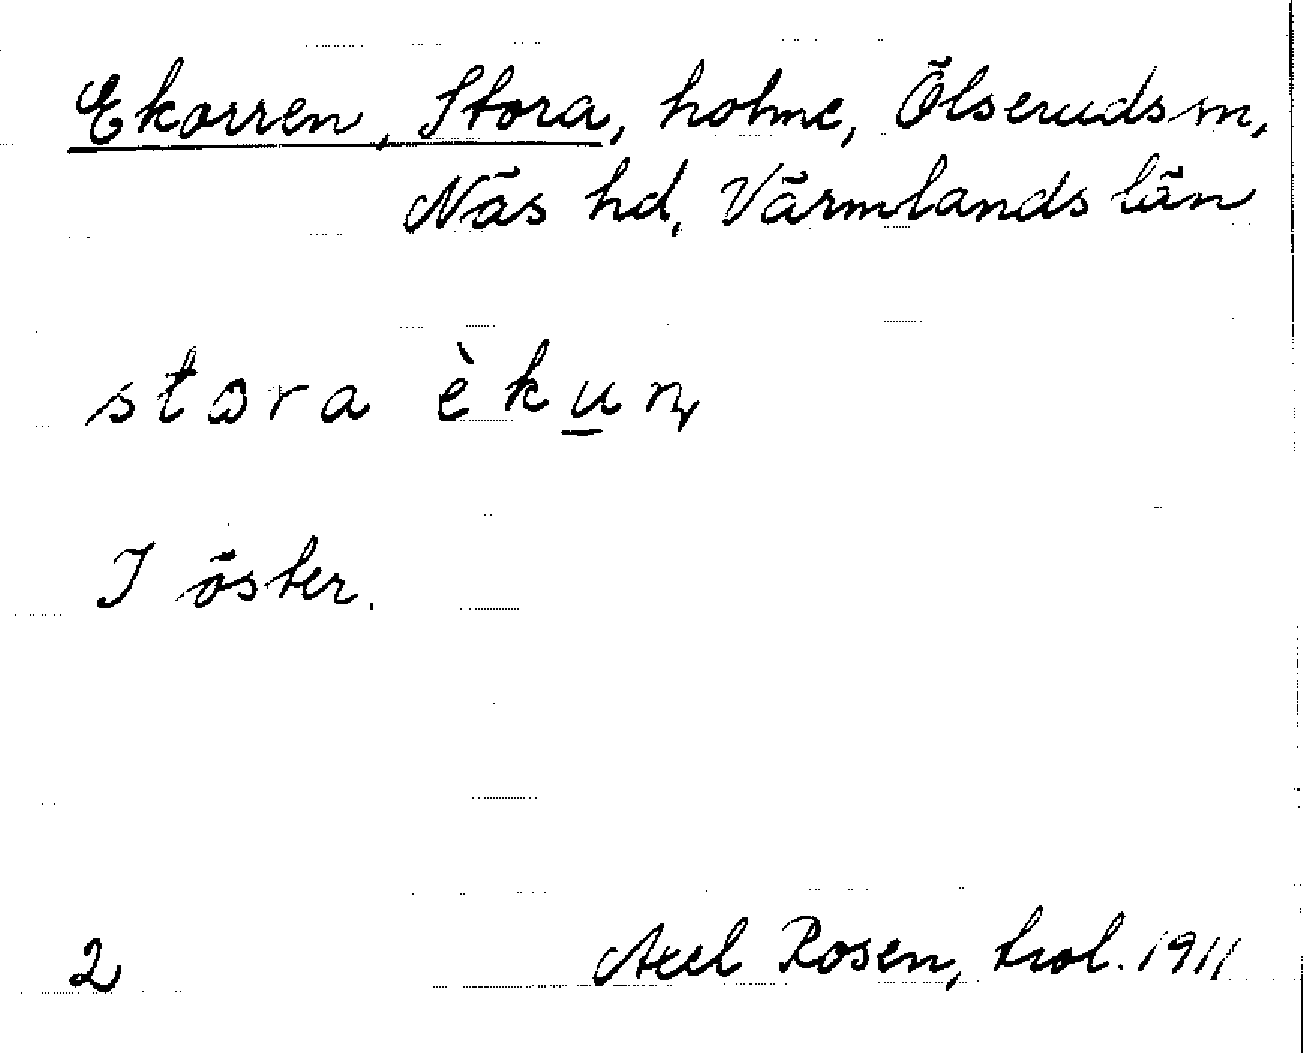 Ekorren, Stora, holme, Ölseruds sn,
Näs hd, Värmlands län
stora èkuɳ
I öster.
2
Axel Rosen, trol. 1911